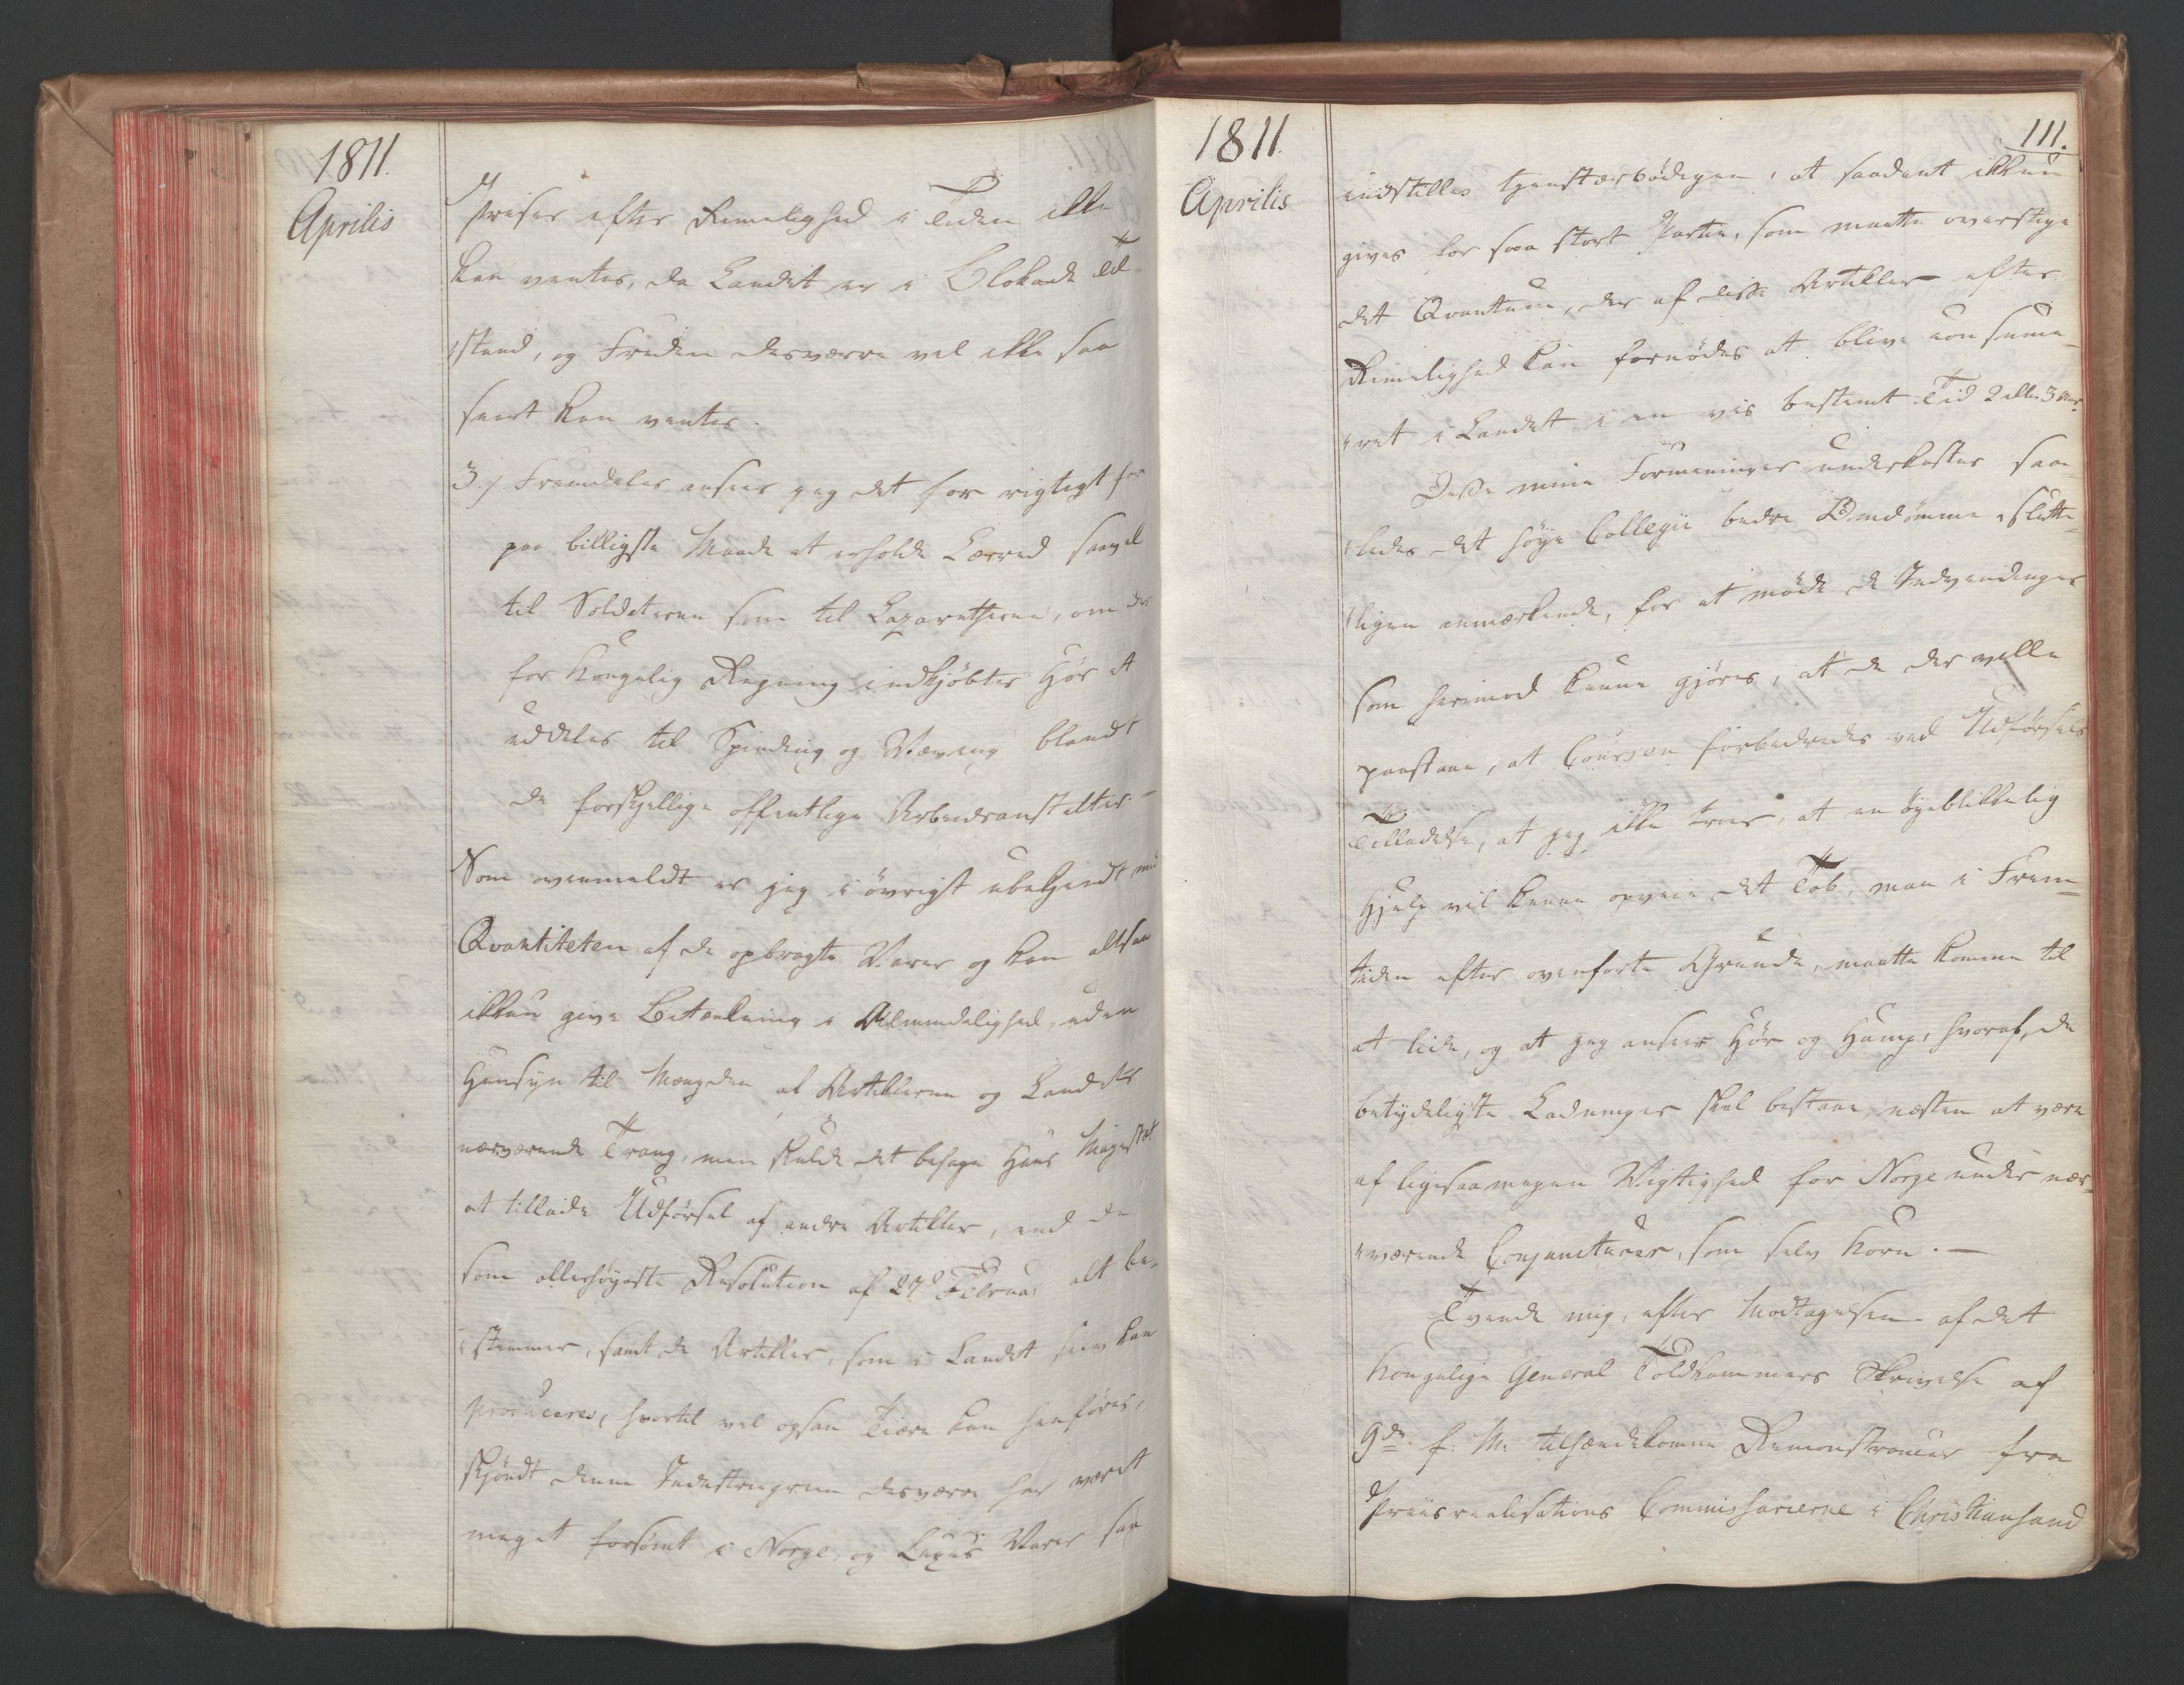 1811.
Aprilis
Priser efter Rimelighed i Tiden ikke
kan ventes, da Landet er i Blokade Til-
stand, og Freden desværre vel ikke saa
snart kan ventes.
3.) Fremdeles anseer jeg det for rigtigt for
paa billigste Maade at erholde Lærred saavel
til Soldaterne som til Lazaretherne, om der
for Kongelig Regning indkjøbtes Hør at
uddeles til Spinding og Vævning blandt
de forskjellige offentlige Arbeidsanstalter. —
Som ovenmeldt er jeg i øvrigt ubekjendt med
Qvantiteten af de opbragte Varer og kan altsaa
ikkun give Betænkning i Almindelighed, uden
Hensyn til Mængden af Artiklerne og Landets
nærværende Trang, men skulde det behage Hans Majestæt
at tillade Udførsel af andre Artikler, end de
som allerhøyeste Resolution af 27d Februar alt be-
stemmer, samt de Artikler, som i Landet selv kan
produceres, hvortil vel ogsaa Tiære kan henføres,
skjøndt denne Industriegreen desværre har været
meget forsømt i Norge, og Luxus Varer saa
1811.
Aprilis
111.
indstilles tjenstærbødigen, at saadant ikkun
gives for saa stort Partie, som maatte overstige
det Qvantum, der af disse Artikler efter
Rimelighed kan fornødes at blive consume-
ret i Landet i en vis bestemt Tid 2 eller 3 Aar.
Disse mine Formeninger underkastes saa-
ledes det høye Collegii bedre Omdømme, slutte-
ligen anmærkende, for at møde de Indvendinger
som herimod kunne gjøres, at de der ville
paastaae, at Coursen forbedredes ved Udførsels
Tilladelse, at jeg ikke troer, at en øyeblikkelig
Hjelp vil kunne opveie det Tab, man i Frem-
tiden efter ovenførte Grunde, maatte komme til
at lide, og at jeg anseer Hør og Hamp, hvoraf de
betydeligste Ladninger skal bestaae, næsten at være
af ligesaamegen Vigtighed for Norge under nær-
værende Conjuncturer, som selv Korn. —
Tvende mig, efter Modtagelsen af det
Kongelige General Toldkammers Skrivelse af
9de f. M. tilhændekomne Remonstrancer fra
Priisrealisations Commissarierne i Christiansand